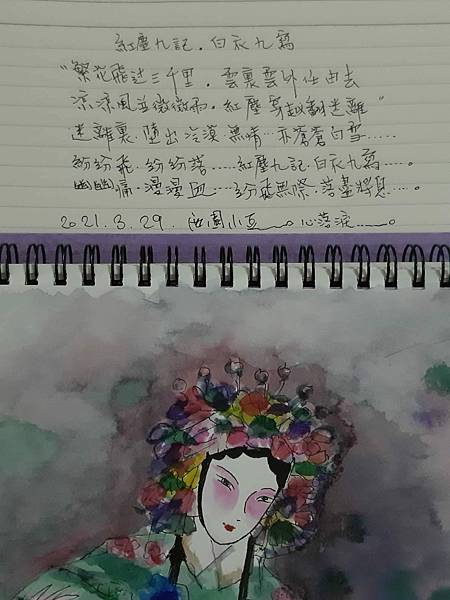 紅塵九記．白衣九寫
"繁花飛過三千里．雲裏雲外任由去
涼涼風並微微雨．紅塵穿越翻迷離"
迷離裏．墮出冷漠無情…亦蒼蒼白雪.....
紛紛飛．紛紛落.....紅塵九記．白衣九寫....。
幽幽痛．漫漫血....紛飛無際．落盡
2021.3.29. 小豆 心落淚.....。